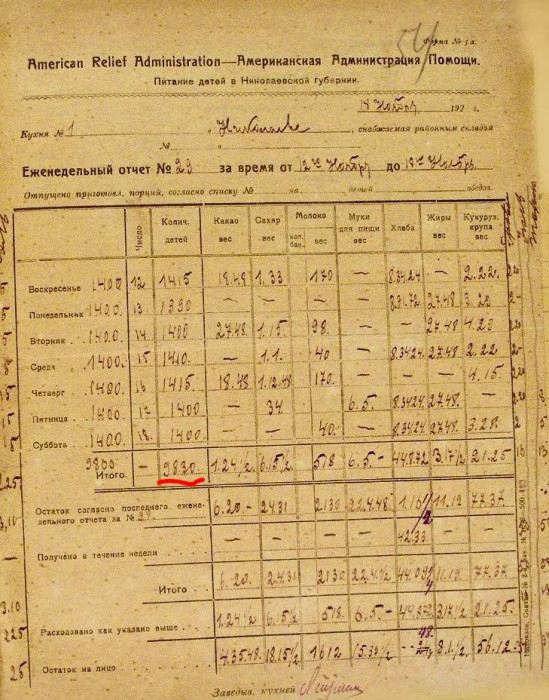 54
Форма № 5а.
American Relief Administration—Американская Администрация Помощи.
Питание детей в Николаевской губернии.
18 Ноября 192 г.
Кухня № 1 Николаеве, снабжаемая районным складом
№ "
Еженедельный отчет № 29 за время от 12го Ноября до 18го Ноября.
Отпущено приготовл. порций, согласно списку № на детей обедов.
Число Колич. детей Какао вес Сахар вес Молоко кол. бан. вес Муки для пищи вес Хлеба Жиры вес Кукуруз. крупа вес
Воскресенье 1400 12 1415 18.48 1.33 170 — 8.34.24 — 2.22.
Понедельник 1400. 13 1390 — — — — 27.48 3.20
Вторник 1400. 14 1400 27.48 1.15. 98. — — 27.48 4.20
Среда 1400. 15 1410. — 1.1. 40 — 8.34.24 27.48 2.22
Четверг 1400. 16 1415. 18.48 1.12.48 170. — — — 4.15.
Пятница 1400 17 1400 — 34. — 6.5. 8.34.24 27.48 —
Суббота 1400. 18. 1400 — — 40. — 8.34.24 27.48 3.28.
9800
Итого — 9830. 1.24½ 6.15½ 518 6.5.- 44.872 3.17½ 21.25
Остаток согласно последнего ежене-
дельного отчета за № 6.20.- 24.31 2130 22.4.48 11.19 77.37
Получено в течение недели 42.33
Итого 6.20. 24.31 2130. 22.4.½ 11.19. 77.37
Расходовано как указано выше 1.24½ 6.15½ 518. 6.5.- 44.872 3.17½ 21.25.
Остаток на лицо 4.35.48 18.15½ 1612 15.39½ 8.1.½ 56.12
Заведыв. кухней